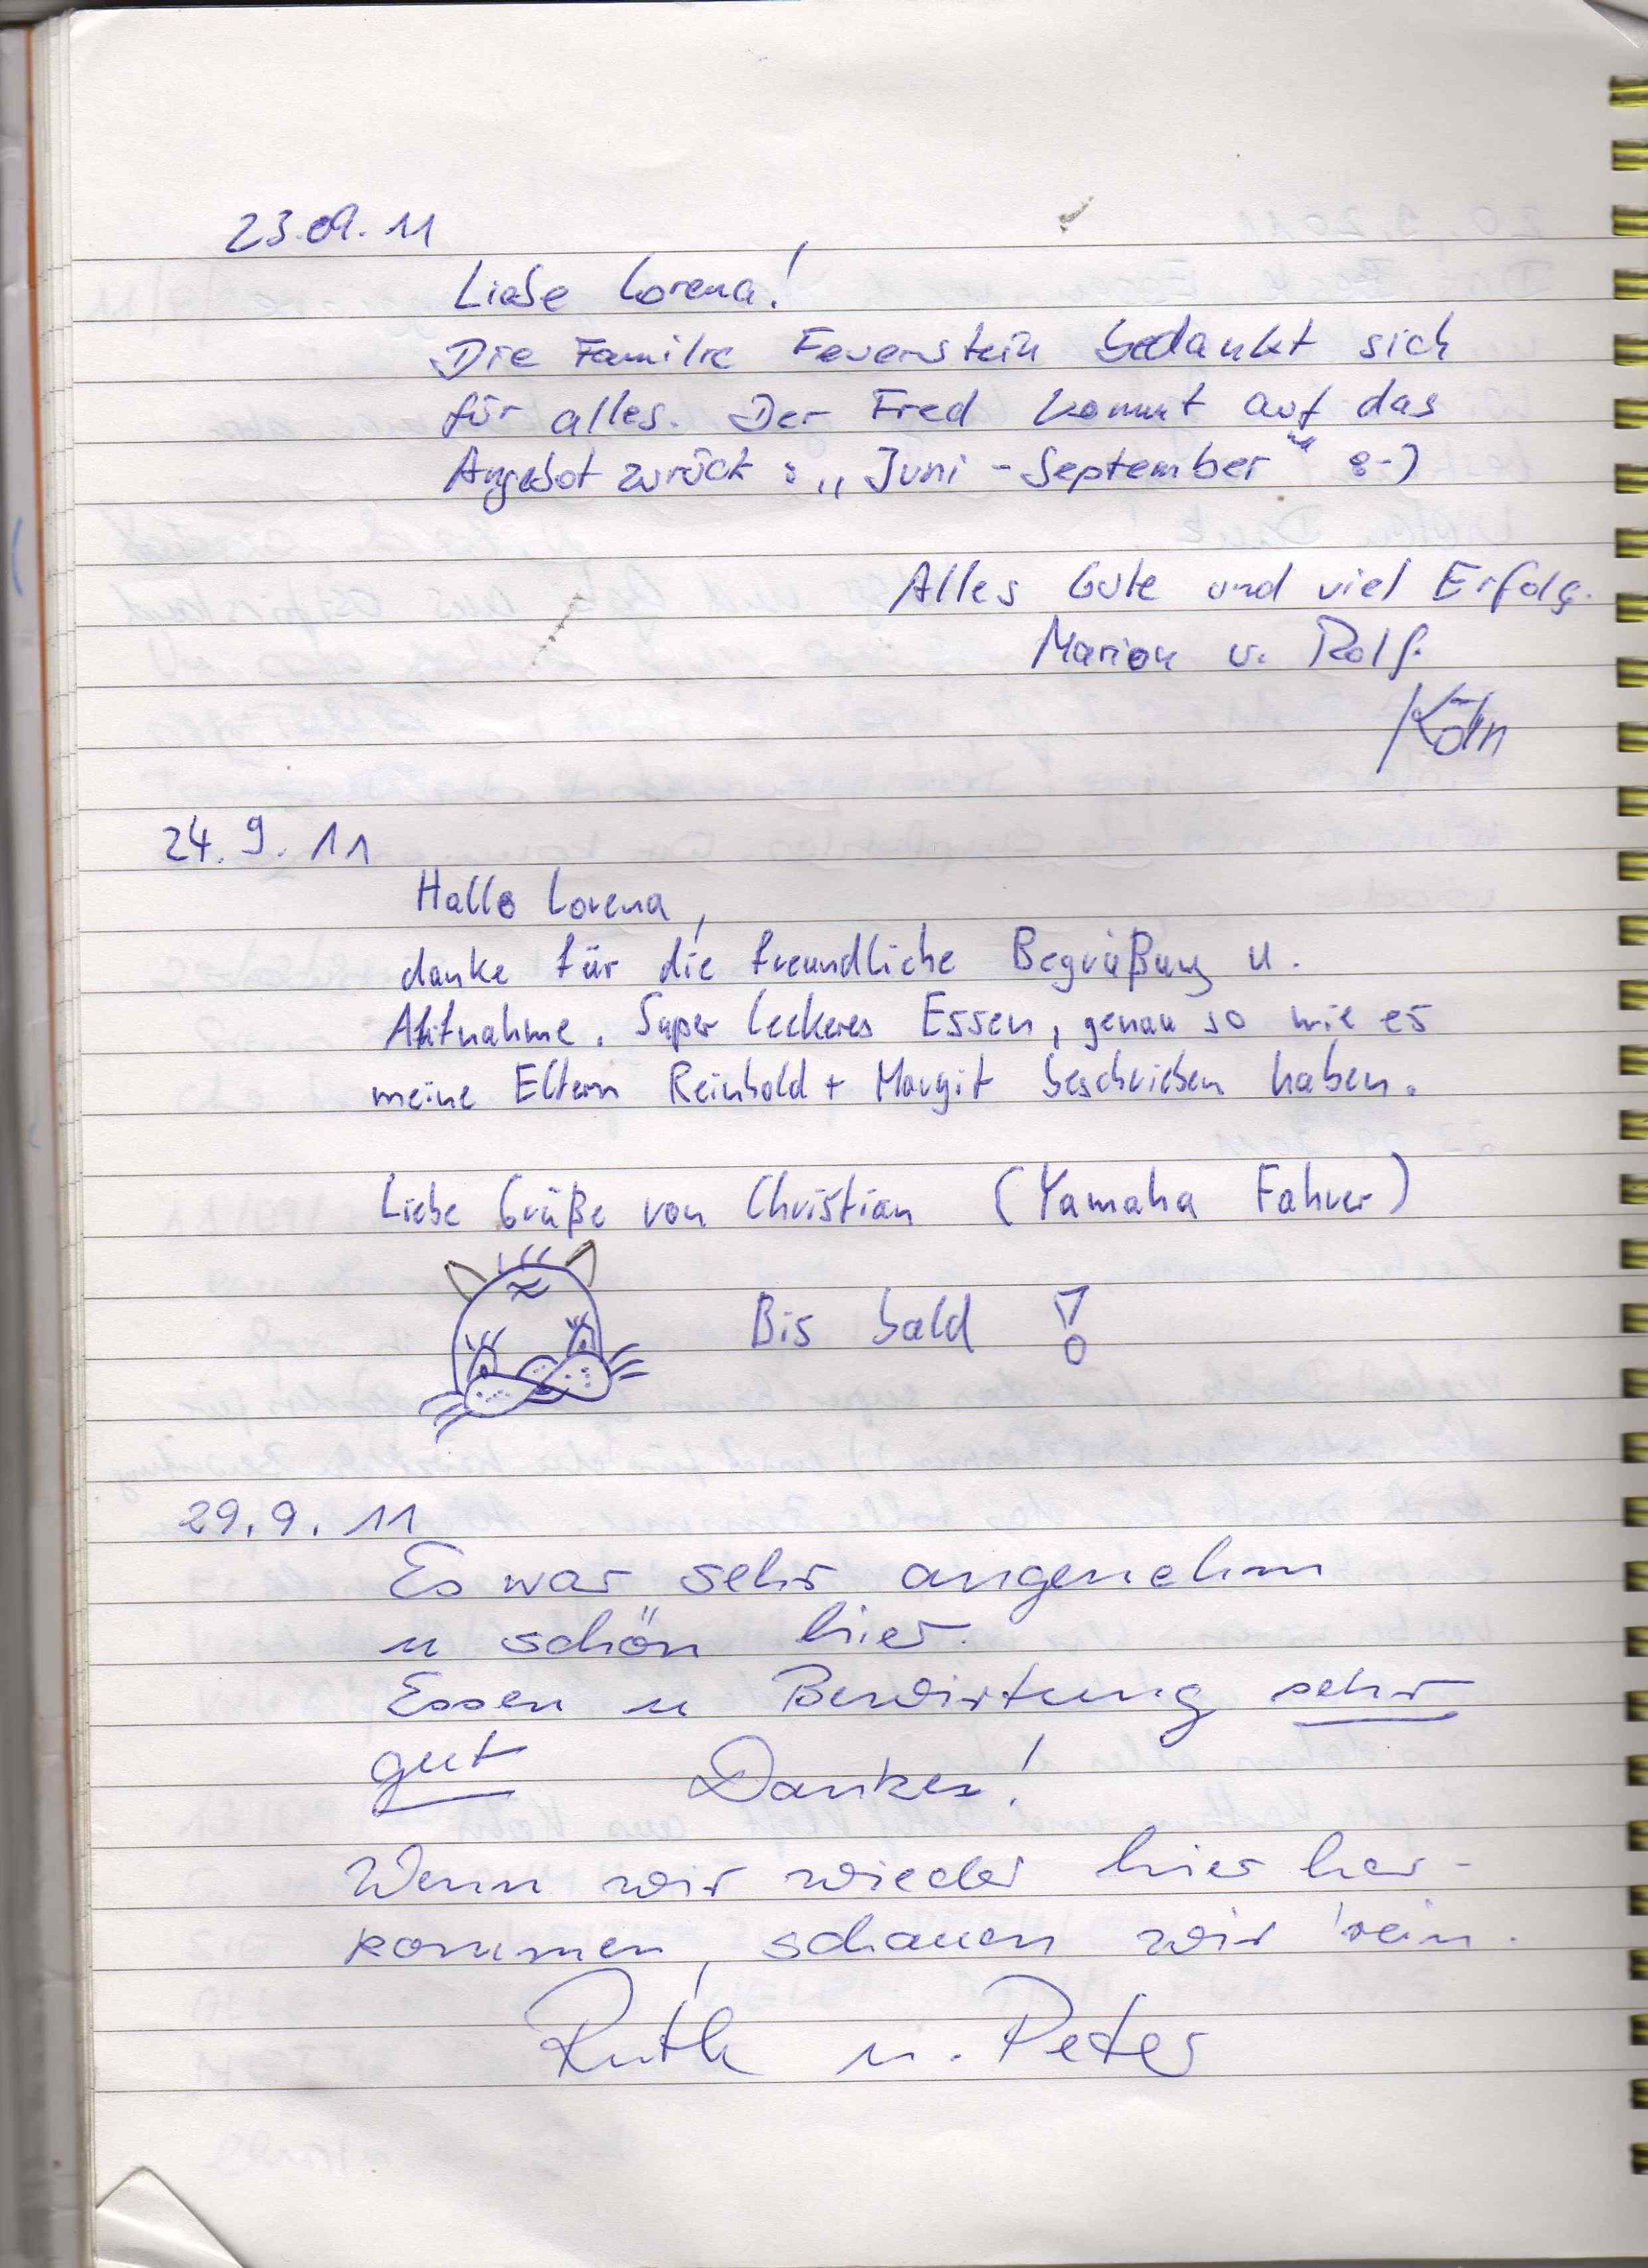 23.09.11
Liebe Lorena!
Die Familie Feuerstein bedankt sich
für alles. Der Fred kommt auf das
Angebot zurück: „Juni - September" 8-)
Alles Gute und viel Erfolg.
Marion u. Rolf.
Köln
24.9.11
Hallo Lorena,
danke für die freundliche Begrüßung u.
Aufnahme. Super leckeres Essen, genau so wie es
meine Eltern Reinhold + Margit beschrieben haben.
Liebe Grüße von Christian (Yamaha Fahrer)
Bis bald !
29.9.11
Es war sehr angenehm
u schön hier.
Essen u Bewirtung sehr
gut Danke!
Wenn wir wieder hier her-
kommen, schauen wir 'rein.
Ruth u. Peter